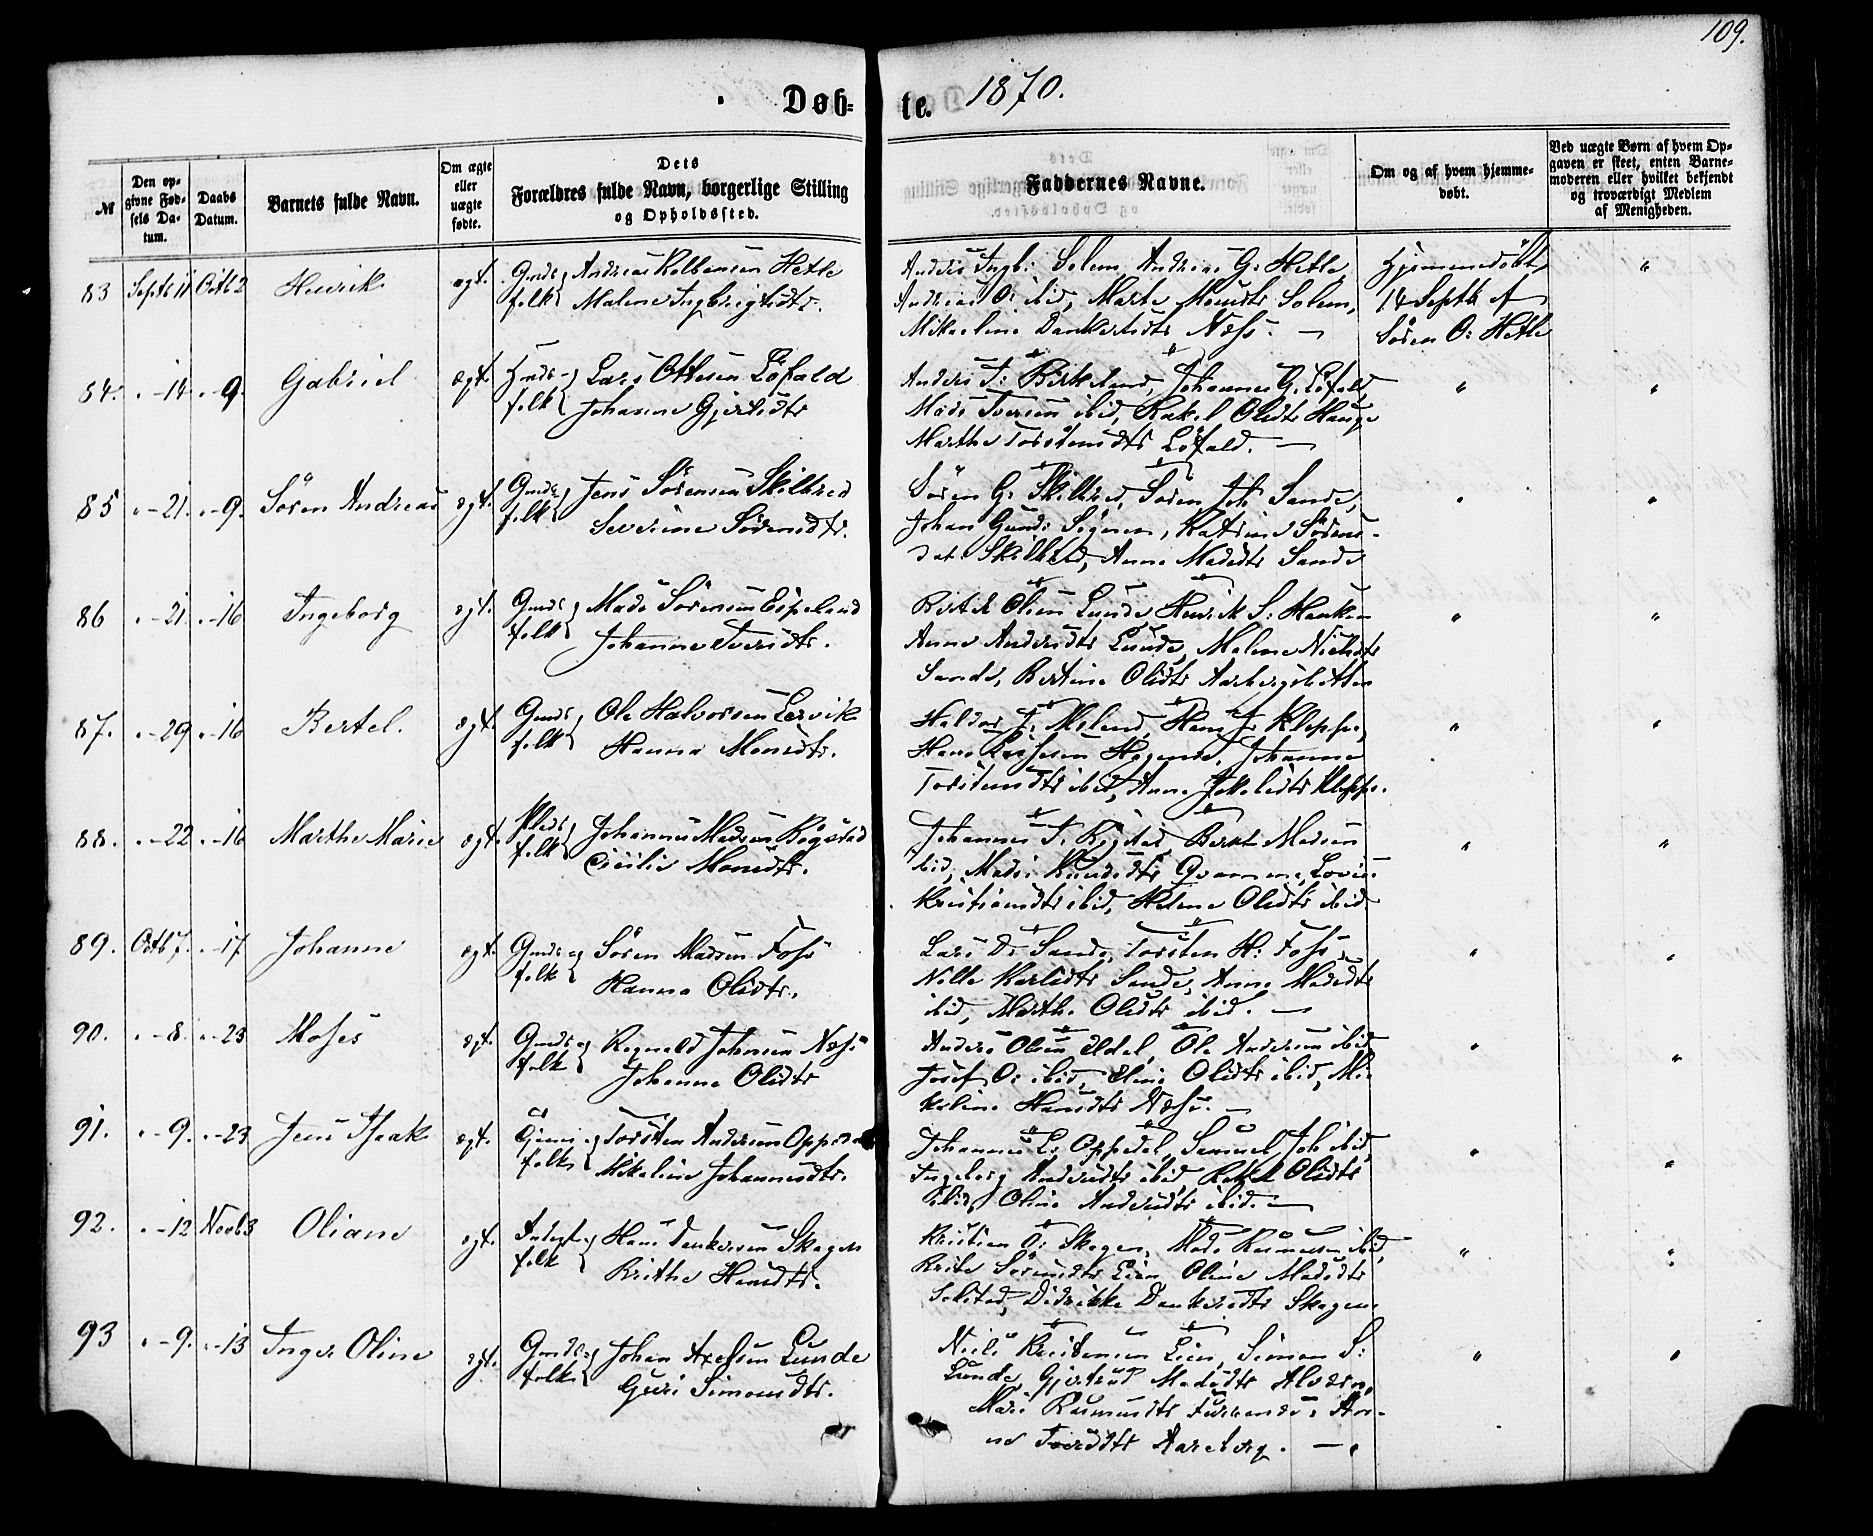 109.
Døb= te. 1870.
№
Den op-
givne Fød-
sels Da-
tum.
Daabs
Datum.
Barnets fulde Navn.
Om ægte
eller
uægte
fødte.
Dets
Forældres fulde Navn, borgerlige Stilling
og Opholdssted.
Faddernes Navne.
Om og af hvem hjemme-
døbt.
Ved uægte Børn af hvem Op-
gaven er skeet, enten Barne-
moderen eller hvilket bekjendt
og troværdigt Medlem
af Menigheden.
83 Septb 11 Octb 2 Henrik ægt. Gmds- Andreas Hetle
folk Malene Ingbrigtsdtr.
Anders Ingb: Solem, Andreas G: Hetle
Andreas O: ibid, Marte Monsdtr Solem,
Mikaeline Dankertsdtr Næss. —
Hjemmedøbt
14 Septb af
Søren O: Hetle
"
84. " - 14 " - 9. Gabriel ægt. Lars Ottesen Löfald
folk Johanne Gjertsdtr
Anders T: Birkeland, Johannes G. Löfald,
Mads Iversen ibid, Rakel Olsdtr Hauge
Marthe Torstensdtr Löfald. —
" "
85 " - 21. " - 9. Sören Andreas ægt. Gmds- folk Jens Sörensen Skilbred
Severine Sörensdtr.
Sören G: Skilbred, Sören Joh: Sande,
Johan Gund: Katrine Sörens-
dat Skilbred, Anne Madsdtr Sande
" "
86 " - 21. " - 16 Ingeborg ægt. Gmds folk Mads Sörensen Espeland
Johanne Iversdtr.
Bertel Olsen Lunde, Henrik S:
Anne Andersdtr Lunde, Malene Nielsdtr
Sande, Bertine Olsdtr
" "
87. " - 29 " - 16 Bertel. ægt. Gmds folk Ole Halvorsen Lervik
Hanna Monsdtr.
Haldor J: Hans J: Kleppe,
Hans Johanne
Torstensdtr ibid, Anne Jakobsdtr Kleppe.
" "
88. " - 22 " - 16 Marthe Marie ægt. Plads folk Johannes Madsen Rögstad
Cicilie Monsdtr.
Johannes T. Rögstad, Bernt Madsen
ibid, Kvamme,
Kristiansdtr ibid, Helene Olsdtr ibid.
" "
89. Octb 7. " - 17 Johanne ægt. Gmds- folk Sören Madsen Foss
Hanna Olsdtr.
Lars D: Sande, Torsten H: Foss,
Nille Karlsdtr Sande, Anne Madsdtr
ibid, Marthe Olsdtr ibid. —
" "
90. " - 8. " - 23 Moses ægt. Gmds- folk Ragnald Johnsen Næss
Johanna Olsdtr
Anders Olsen Ole Andersen ibid
Josef O: ibid, Eline Olsdtr ibid, Mi-
kaline Hansdtr Næss. —
" "
91. " - 9. " - 23 Jens Isaak ægt. folk Torsten Andersen Oppedal
Mikaline Johannesdtr.
Johannes L: Oppedal, Samuel Joh: ibid,
Ingeborg Andersdtr ibid, Rakel Olsdtr
ibid, Oline Andersdtr ibid. —
" "
92. " - 12 Novb 3 Oliane ægt. folk Hans Dankersen Skagen
Brithe Hansdtr.
Kristian O: Skagen, Mads Rasmussen ibid,
Brite Sörensdtr Lien, Oline Madsdtr
Solstad, Didrikke Dankertsdtr Skagen.
" "
93 " - 9. " - 13 Inger Oline ægt. Gmds- folk Johan Axelsen Lunde
Guri Simonsdtr.
Niels Kristensen Lien, Simon S:
Lunde, Gjertrud Madsdtr Alværn,
Mari Rasmusdtr An-
ne Iversdtr Aareberg. —
" "